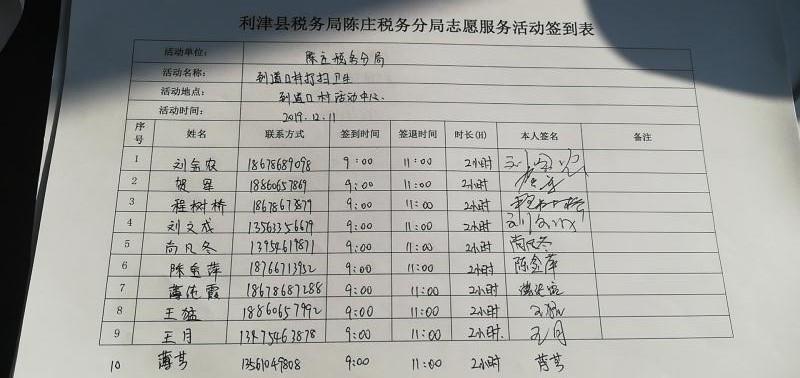 利津县税务局陈庄税务分局志愿服务活动签到表
活动单位: 陈庄税务分局
活动名称: 到道口村打扫卫生
活动地点: 到道口村活动中心.
活动时间: 2019.12.11
序号 姓名 联系方式 签到时间 签退时间 时长(H) 本人签名 备注
1 刘金农 18678689098 9:00 11:00 2小时
2 贺军 18860657869 9:00 11:00 2小时 贺军
3 程树桥 18678673879 9:00 11:00 2小时 程树桥
4 刘文成 13563356679 9:00 11:00 2小时 刘文成
5 尚凡冬 13954619871 9:00 11:00 2小时 尚凡冬
6 陈金萍 18766713952 9:00 11:00 2小时 陈金萍
7 霞 18678687288 9:00 11:00 2小时
8 王猛 18860657992 9:00 11:00 2小时 王猛
9 王月 13475463878 9:00 11:00 2小时. 王月
10 薄其 13561049808 9:00 11:00 2小时